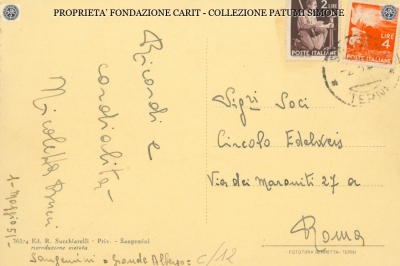 PROPRIETA' FONDAZIONE CARIT - COLLEZIONE PATUMI SIMONE
2 LIRE
POSTE ITALIANE
LIRE 4
POSTE ITALIANE
TERNI
Ricordi e
cordialità
Nicoletta
1-Maggio 51-
Vigri Soci
Circolo Edelweis
Via dei Maraniti 27 a
Roma
Ed. R. Succhiarelli - Priv. - Sangemini
riproduzione vietata
Sangemini = Grande Albergo = C/12
FOTOTIPIA TERNI